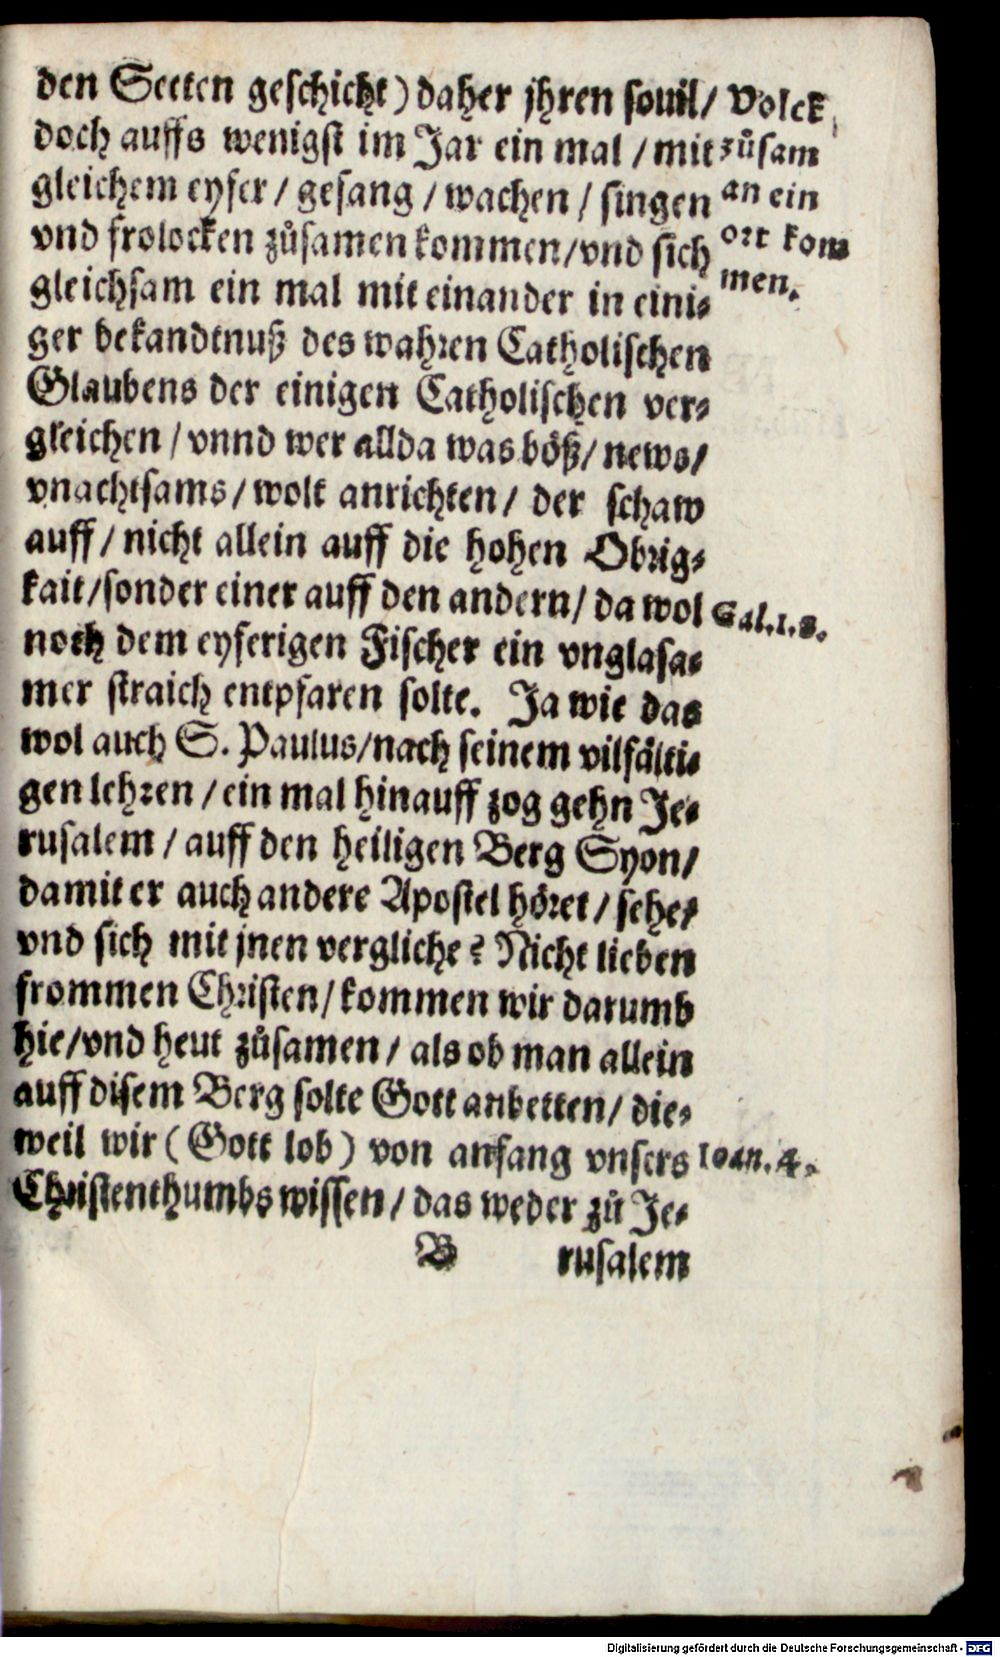 den Secten geschicht) daher jhren souil/
doch auffs wenigst im Jar ein mal / mit
gleichem eyfer / gesang / wachen / singen
vnd frolocken zůsamen kommen/vnd sich
gleichsam ein mal mit einander in eini⸗
ger bekandtnuß des wahren Catholischen
Glaubens der einigen Catholischen ver⸗
gleichen / vnnd wer allda was böß/ news/
vnachtsams/ wolt anrichten/ der schaw
auff/ nicht allein auff die hohen Obrig⸗
kait/sonder einer auff den andern/ da wol
noch dem eyferigen Fischer ein vnglasa⸗
mer straich entpfaren solte. Ja wie das
wol auch S. Paulus/nach seinem vilfälti⸗
gen lehren / ein mal hinauff zog gehn Je⸗
rusalem / auff den heiligen Berg Syon/
damit er auch andere Apostel höret / sehe/
vnd sich mit jnen vergliche? Nicht lieben
frommen Christen/ kommen wir darumb
hie/vnd heut zůsamen / als ob man allein
auff disem Berg solte Gott anbetten/ die⸗
weil wir (Gott lob) von anfang vnsers
Christenthumbs wissen/ das weder zů Je⸗
B rusalem
Volck
zůsam
an ein
ort kom
men.
Gal.1.2.
Ioan. 4.
Digitalisierung gefördert durch die Deutsche Forschungsgemeinschaft - DFG